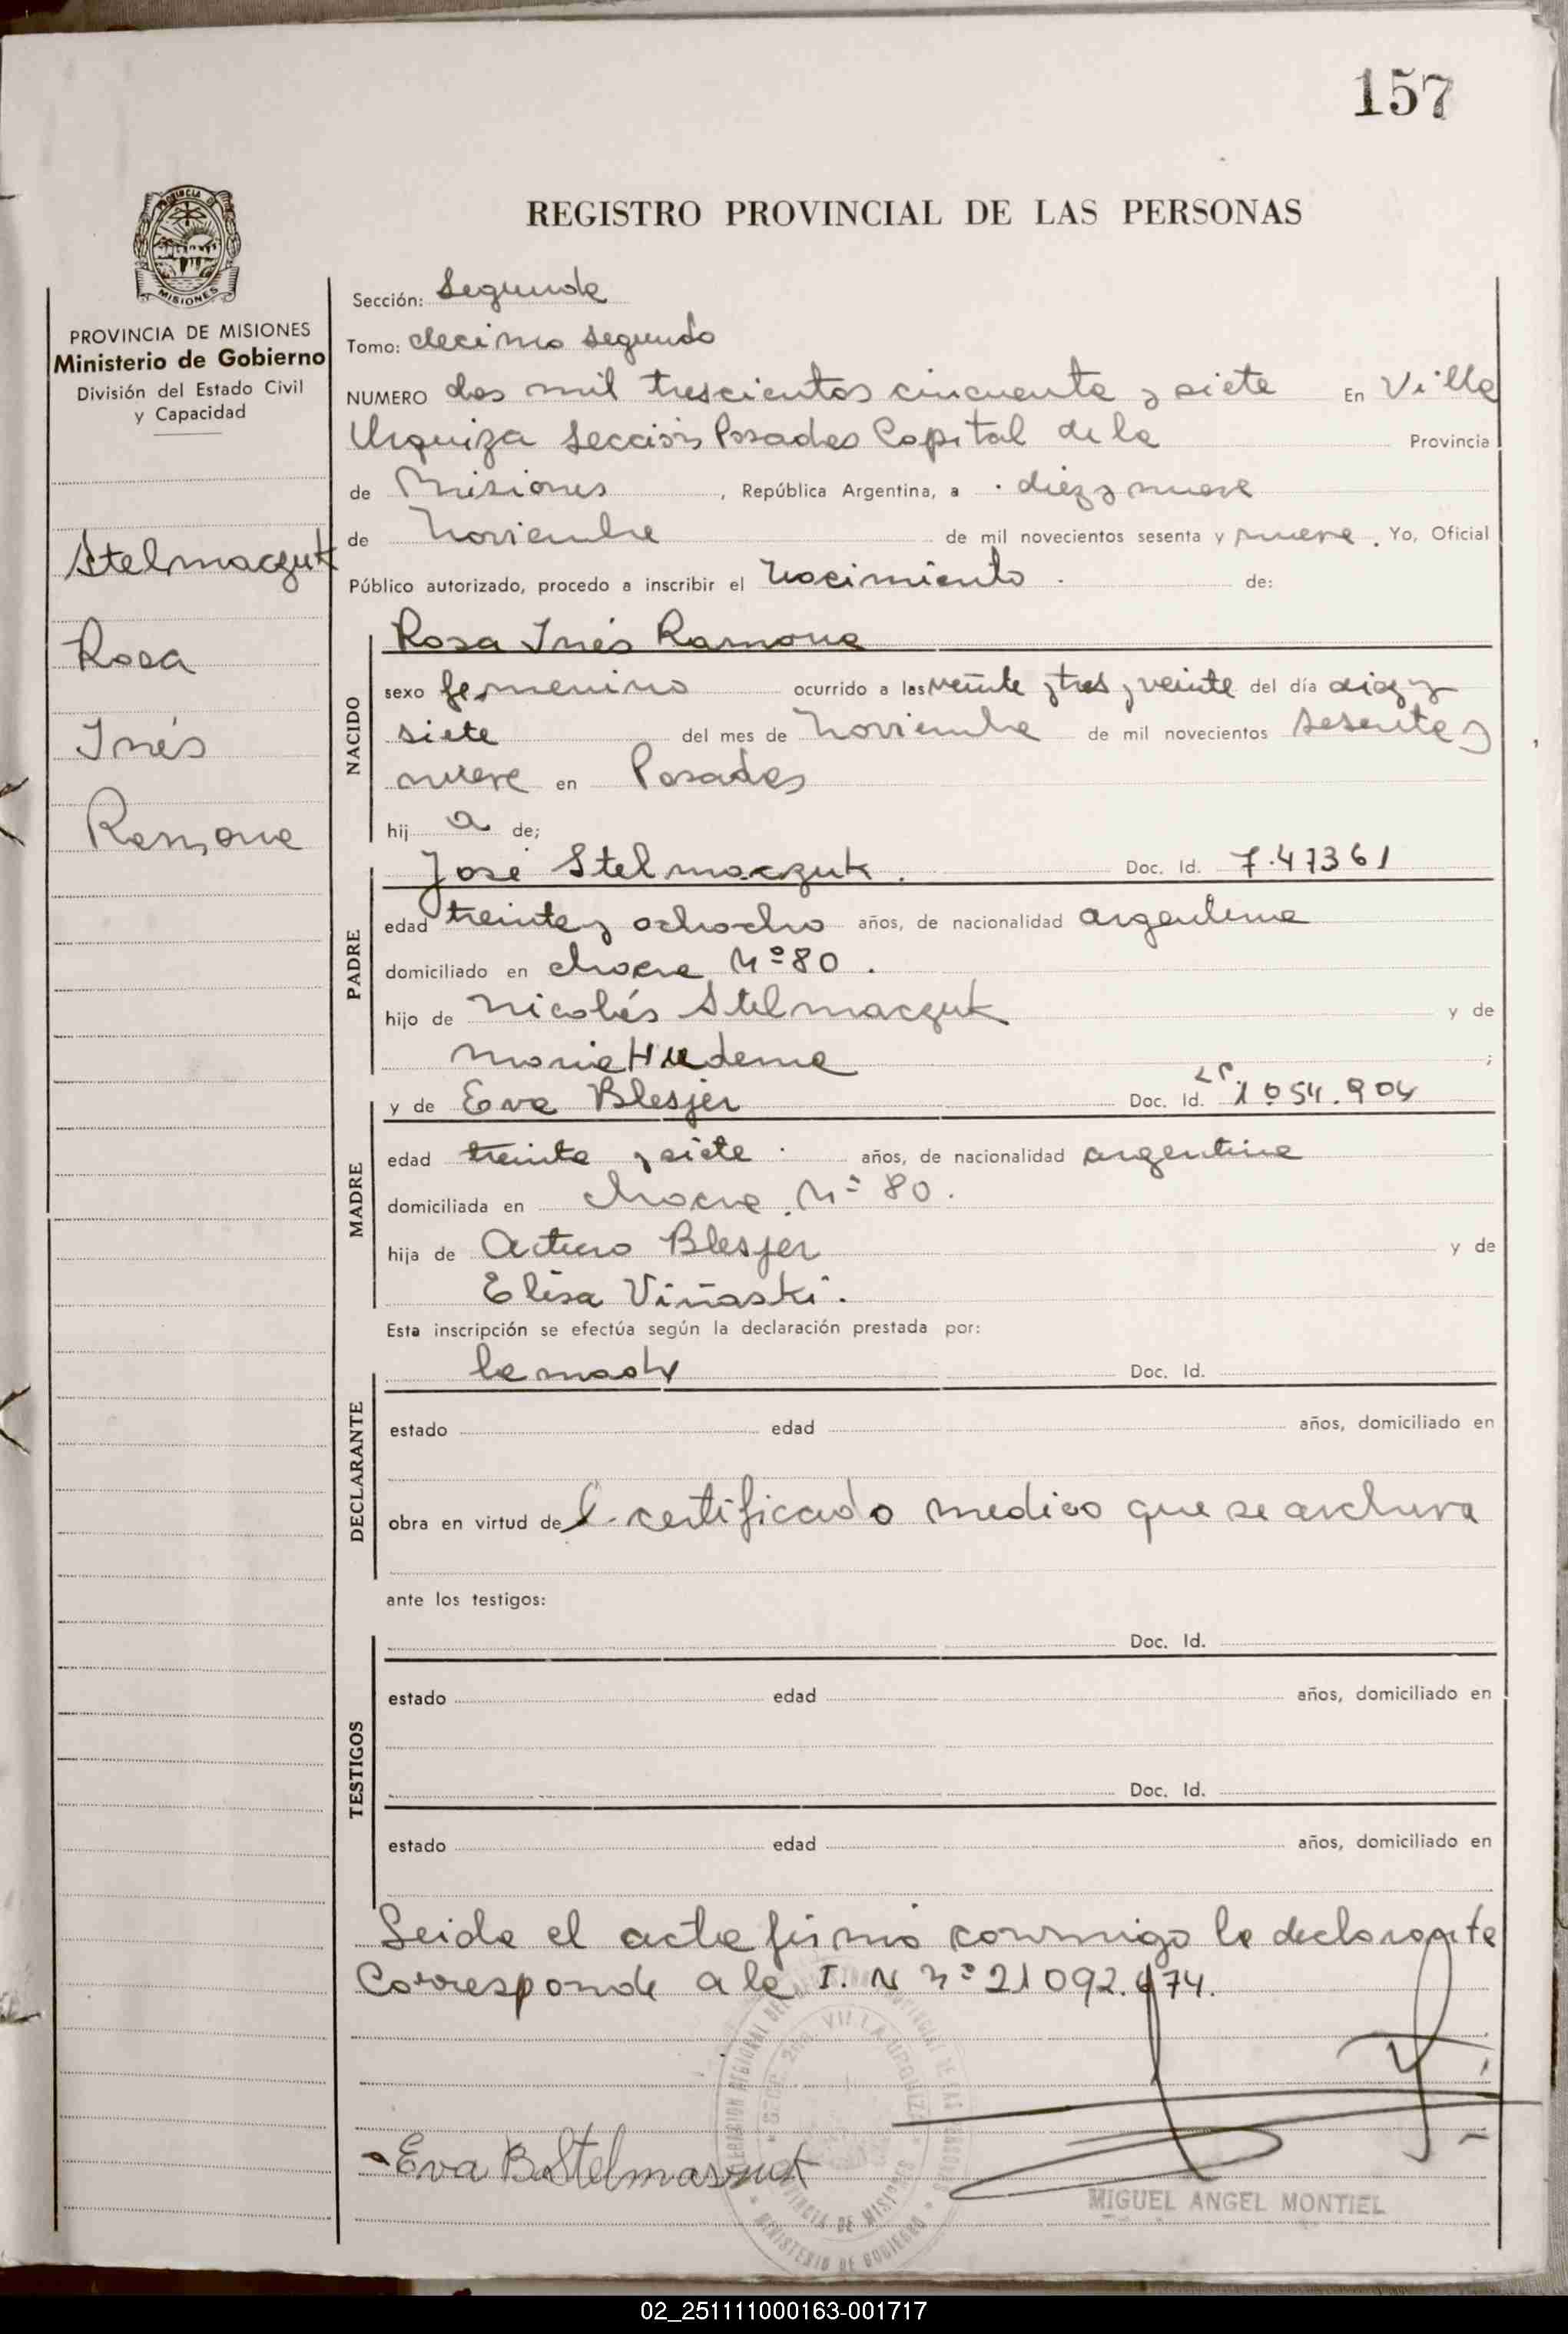 157
REGISTRO PROVINCIAL DE LAS PERSONAS
MISIONES
PROVINCIA DE MISIONES
Ministerio de Gobierno
División del Estado Civil
y Capacidad
Stelmaczuk
Rosa
Inés
Ramona
Sección: Segunda
Tomo: decimo segundo
NUMERO dos mil trescientos cincuenta y siete En Villa
Urquiza Sección Posadas Capital de la Provincia
de Misiones , República Argentina, a diez y nueve
de Noviembre de mil novecientos sesenta y nueve . Yo, Oficial
Público autorizado, procedo a inscribir el Nacimiento de:
NACIDO
Rosa Inés Ramona
sexo femenino ocurrido a las veinte y tres y veinte del día diez y
siete del mes de Noviembre de mil novecientos sesenta y
nueve en Posadas
hij a de;
PADRE
José Stelmaczuk . Doc. Id. 7.47361
edad treinta y ochocho años, de nacionalidad argentina
domiciliado en chacra Nº 80 .
hijo de Nicolás Stelmaczuk y de
Maria Hudema ;
MADRE
y de Eva Blesjer Doc. Id. 1054.904
edad treinta y siete años, de nacionalidad argentina
domiciliada en chacra Nº 80 .
hija de Arturo Blesjer y de
Elisa Viñaski .
Esta inscripción se efectúa según la declaración prestada por:
DECLARANTE
la madre Doc. Id.
estado edad años, domiciliado en
obra en virtud del certificado medico que se archiva
ante los testigos:
TESTIGOS
Doc. Id.
estado edad años, domiciliado en
Doc. Id.
estado edad años, domiciliado en
Leida el acta firmó conmigo la declarante
Corresponde a la I. N nº 21092.674.
Eva B Stelmaszuk
MIGUEL ANGEL MONTIEL
02_251111000163-001717